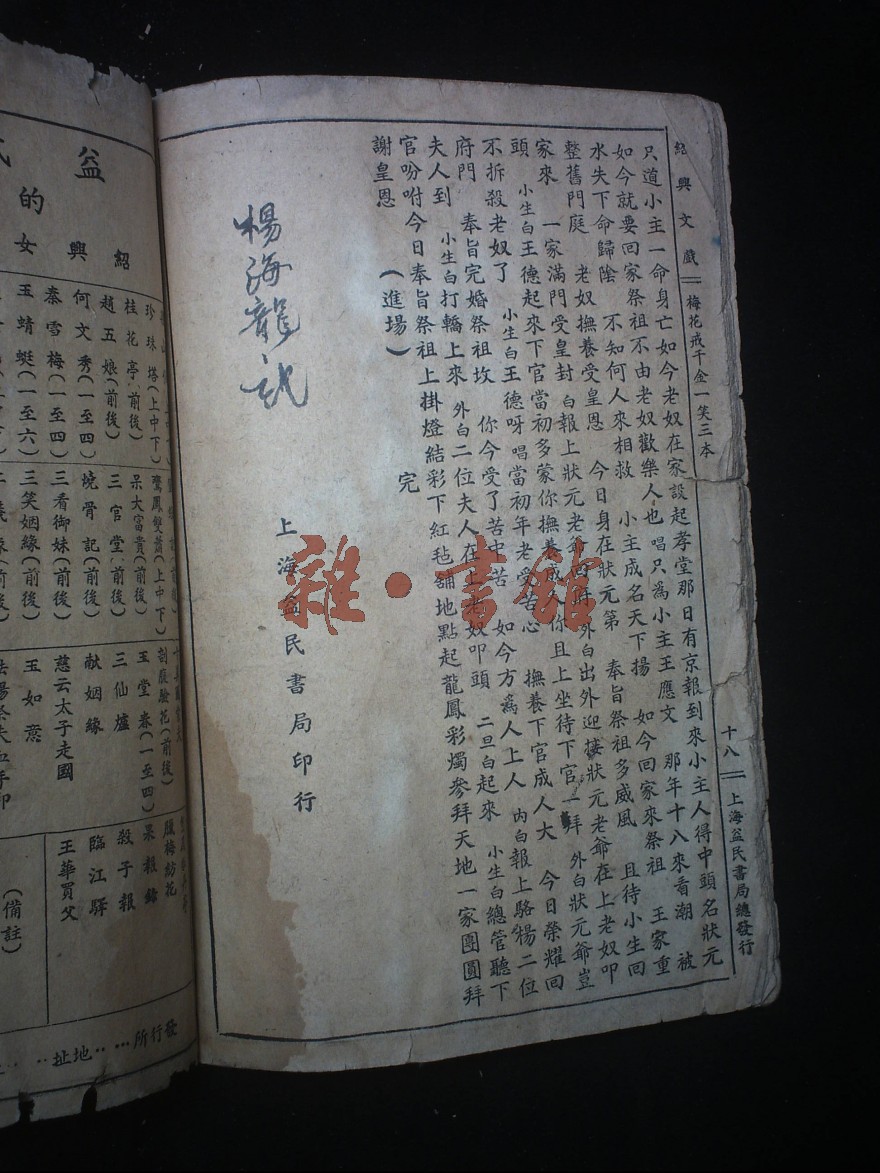 紹興文戲
梅花戒千金一笑三本
十八
上海益民書局總發行
只道小主一命身亡如今老奴在家設起孝堂那日有京報到來小主人得中頭名狀元
如今就要回家祭祖不由老奴歡樂人也唱只為小主王應文 那年十八來看潮 被
水失下命歸陰 不知何人來相救 小主成名天下揚 如今回家來祭祖 王家重
整舊門庭 老奴撫養受皇恩 今日身在狀元第 奉旨祭祖多威風 且待小生回
家來 一家滿門受皇封 白報上狀元老爺 外白出外迎接狀元老爺在上老奴叩
頭 小生白王德起來下官當初多蒙你撫養成人你且上坐待下官一拜 外白狀元爺豈
不拆殺老奴了 小生白王德呀唱當初年老受苦心 撫養下官成人大 今日榮耀回
府門 奉旨完婚祭祖坟 你今受了苦中苦 如今方為人上人 內白報上駱楊二位
夫人到 小生白打轎上來 外白二位夫人在上老奴叩頭 二旦白起來 小生白總管聽下
官吩咐今日奉旨祭祖上掛燈結彩下紅毡舖地點起龍鳳彩燭參拜天地一家團圓拜
謝皇恩 (進場) 完
楊海龍
上海益民書局印行
益
紹興
的女
珍珠塔(上中下)
桂花亭(前後)
趙五娘(前後)
何文秀(一至四)
秦雪梅(一至四)
玉蜻蜓(一至六)
鸞鳳雙蕭(上中下)
呆大富貴(前後)
三官堂(前後)
燒骨記(前後)
三看御妹(前後)
三笑姻緣(前後)
刮殿臉花(前後)
玉堂春(一至四)
三仙爐
献姻緣
慈云太子走國
玉如意
臘梅紡花
果報錄
殺子報
臨江驛
王華買父
(備註)
發行所…地址
雜·書館